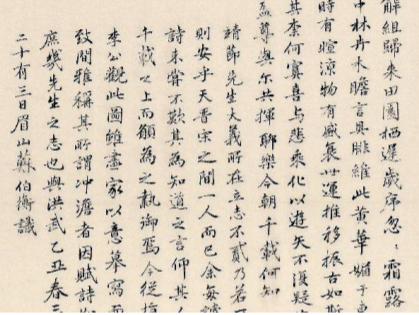 解組歸来田園栖遲歲序忽:霜露
中林丹木瞻言具腓維此黄華媚于
時有暄涼物有盛衰世運推移振古如斯
其柰何寡喜與悲乘化以遊矢不復疑
壺尊與尔共揮聊樂今朝千載何知
靖節先生大義所在立志不貳乃若
則安乎天晉宋之間一人而已余每讀
詩未甞不歎其為知道之言仰其
千載之上而願為之執御焉今從
李公觀此圖雖畫家以意摹寫而
致閒雅稱其所謂冲澹者因賦詩
庶幾先生之志也與洪武乙丑春三
二十有三日眉山蘇伯衡識